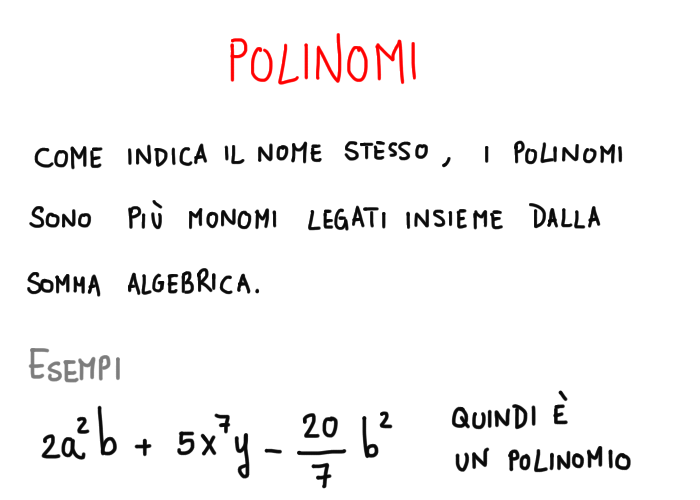 POLINOMI
COME INDICA IL NOME STESSO, I POLINOMI
SONO PIÙ MONOMI LEGATI INSIEME DALLA
SOMMA ALGEBRICA.
ESEMPI
2a²b + 5x⁷y - 20/7 b²
QUINDI È
UN POLINOMIO